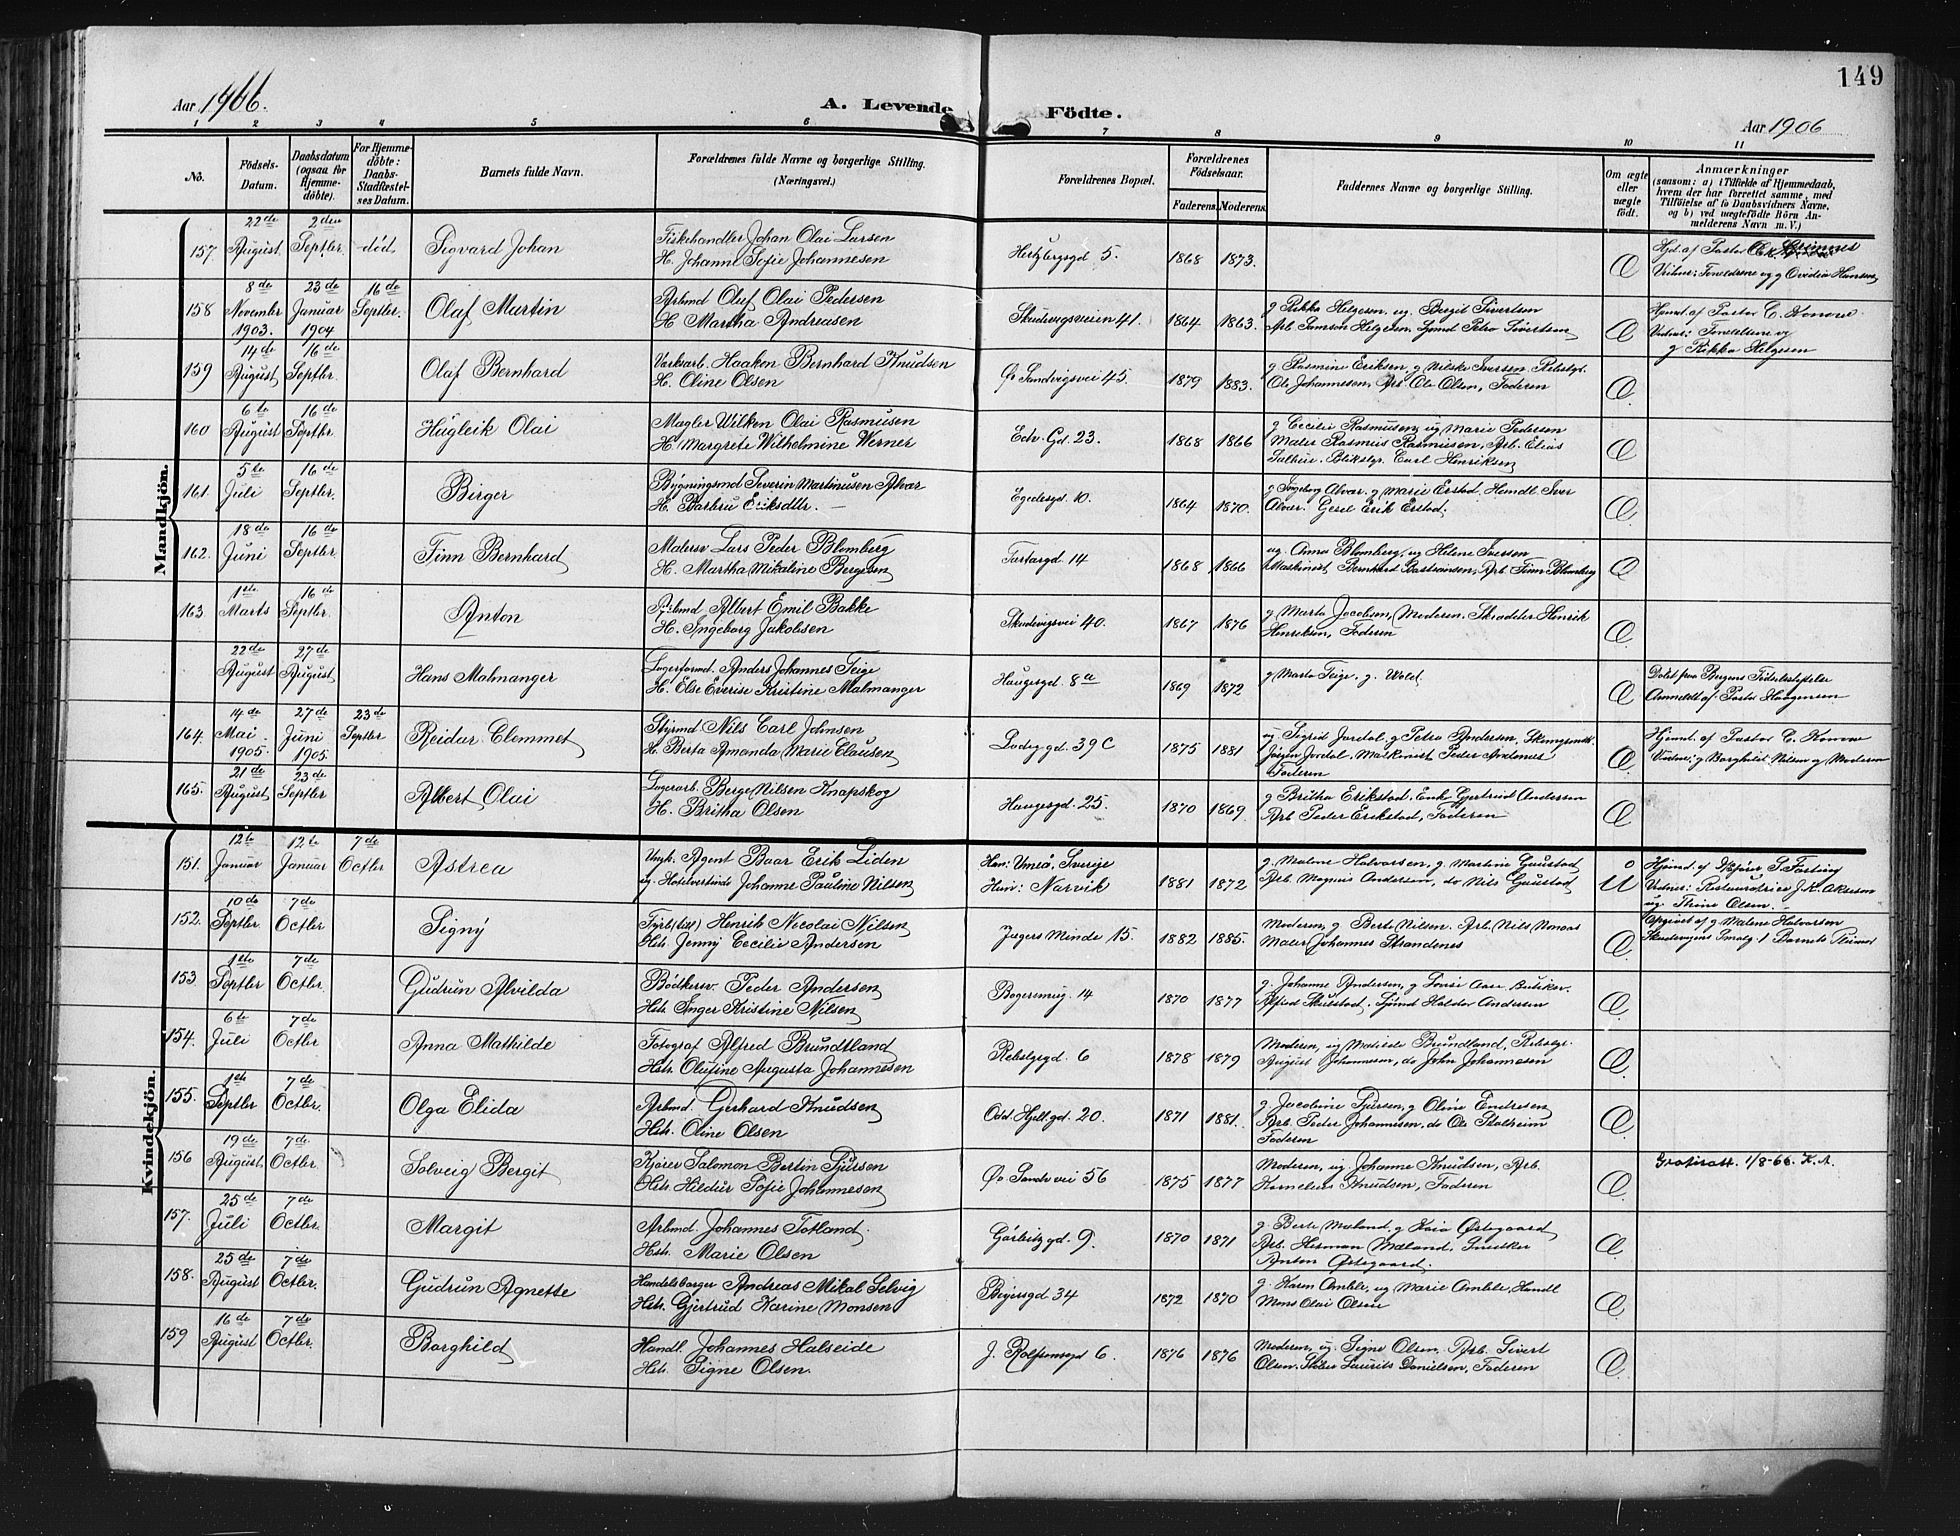 149
Aar 1906.
A. Levende Födte.
Aar 1906
1 2 3 4 5 6 7 8 9 10 11
No.
Födsels-Datum.
Daabsdatum (ogsaa for Hjemme-döbte).
For Hjemme-döbte: Daabs-Stadfæstel-ses Datum.
Barnets fulde Navn.
Forældrenes fulde Navne og borgerlige Stilling.
(Næringsvei.)
Forældrenes Bopæl.
Forældrenes Födselsaar.
Faderens. Moderens.
Faddernes Navne og borgerlige Stilling.
Om ægte eller uægte födt.
Anmærkninger
(saasom: a) i Tilfælde af Hjemmedaab, hvem der har forrettet samme, med Tilföielse af to Daabsvidners Navne, og b) ved uægtefödte Börn An-melderens Navn m. V.)
Mandkjön.
157. 22de August 2den Septbr. död Sigvard Johan
Fiskehandler Johan Olai Larsen
H. Johanne Sofie Johannesen
Hertzbergsgd 5. 1868 1873. Æ
158 8de November 1903. 23de Januar 1904 16de Septbr. Olaf Martin
Arbmd Oluf Olai Pedersen
H. Martha Andreasen
Skudevigsveien 41. 1864 1863.
g Rikka Helgesen, ug Bergit Sivertsen
Arb Samson Helgesen, Sjømd Petro Sivertsen
Æ
g Rikka Helgesen
159 14de August 16de Septbr. Olaf Bernhard
Værkarb. Haaken Bernhard Knudsen
H. Oline Olsen
Øv Sandvigsvei 45. 1879 1883.
g Rasmine Eriksen, g Nilske Iversen. Rebslgr.
Ole Johannesen, Arb Ole Olsen, Faderen
Æ
160 6te August 16de Septbr. Hugleik Olai
Mægler Wilken Olai Rasmusen
H. Margrete Wilhelmine Werner
Edv. Gd. 23. 1868 1866
g Cecilie Rasmusen, ug Marie Pedersen
Maler Rasmus Rasmusen, Arb. Elias
Blikslgr. Carl Henriksen
Æ
161. 5te Juli 16de Septbr. Birger
Bygningsmd Severin Martinusen Alvær
H. Barbru Eriksdtr. —
Egedesgd 10. 1864 1870.
g Ingeborg Alvær. g Marie Erstad. Handl Iver
Alvær. Gesel Erik Erstad.
Æ
162. 18de Juni 16de Septbr Finn Bernhard
Malersv Lars Peder Blomberg
H. Martha Mikaline Bergesen
Tartargd 14 1868 1866
ug. Anna Blomberg, ug Helene Iversen
Maskinist Bernhard Bastiansen, Arb. Finn Blomberg
Æ
163 1ste Marts 16de Septbr. Anton
Arbmd Albert Emil Bakke
H. Ingeborg Jakobsen
Skudevigsvei 40. 1867 1876
g Marta Jacobsen, Moderen. Skrædder Henrik
Henriksen, Faderen
Æ
22de August 27de August Hans Malmanger
Lagerformd. Anders Johannes Teige
H. Else Everise Kristine Malmanger
Haugesgd. 8a 1869 1872
g Marta Teige, g. Wold
Æ
Døbt paa Bergens Fødselsstiftelse
Anmeldt af Pastor Haagensen
164. 14de Mai 1905. 27de Juni 1905 23de Septbr Reidar Clemmet
Styrmd Nils Carl Johnsen
H. Berta Amanda Marie Clausen
Ladegd 39 C 1875 1881
ug Sigrid Jordal, g Petra Andersen,
Jørgen Jordal, Maskinist Peder Andersen
Faderen
Æ
Vidner: g Borghild Nilsen og Moderen
165. 21de August 23de Septbr Albert Olai
Lagerarb. Berge Nilsen Knapskog
H. Britha Olsen
Haugesgd. 25. 1870 1869.
g Britha Erikstad. Enke Gjertrud Andersen
Arb Peder Erikstad, Faderen
Æ
Kvindekjön.
151. 12te Januar 12te Januar 7de Octbr Astrea
Ungk. Agent Baar Erik Liden
ug. Hotelvertinde Johanne Pauline Nilsen
Han: Umeå, Sverige
Hun: Narvik
1881 1872
g. Malene Halvorsen, g. Martine Gaustad
Arb. Magnus Andersen, do Nils Gaustad
U
ug Trine Olsen.
Opgivet af g Malene Halvorsen
152. 10de Septbr 7de Octbr. Signy
Henrik Nicolai Nilsen
Hstr. Jenny Cecilie Andersen
Jægers Minde 15 1882 1885.
Moderen, g Berte Nilsen. Arb. Nils Monsas
Maler Johannes Strandenes
Æ
153. 1ste Septbr 7de Octbr. Gudrun Alvilda
Bødkersv. Peder Andersen
Hstr. Inger Kristine Nilsen
Bøgersmug. 14 1870 1877
g. Johanne Andersen, g Lovise Aase Butikbv.
Alfred Skribstad. Sjømd Haldor Andersen
Æ
154. 6te Juli 7de Octbr Anna Mathilde
Fotograf Alfred Brundtland
Hstr. Olufine Augusta Johannesen
Rebslgrgd. 6 1878 1879
Moderen, ug Mathilde Brundtland, Rebslgr.
August Johannesen, do John Johannesen
Æ
155. 1ste Septbr 7de Octbr. Olga Elida
Arbmd. Gerhard Knudsen
Hstr. Oline Olsen
Odd. Hjeltgd. 20. 1871 1881.
g Jacobine Sjursen, g Oline Endresen
Arb. Peder Johannesen, do Ole Stalheim
Faderen
Æ
156 19de August 7de Octbr. Solveig Bergit
Kjører Salomon Bertin Sjursen
Hstr. Hildur Sofie Johannesen
Øv Sandv vei 56 1875 1877
Moderen, ug Johanne Knudsen, Arb.
Kornelius Knudsen, Faderen
Æ
1/8-66. K.A.
157. 25de Juli 7de Octbr. Margit
Arbmd. Johannes Totland.
Hstr. Marie Olsen
Gørbitzgd 9. 1870 1871
g. Berte Mæland, g Kaia Østegaard
Arb. Herman Mæland, Snedker
Anton Østegaard.
Æ
158. 25de August 7de Octbr. Gudrun Agnette
Handelsborger Andreas Mikal Selvig
Hstr. Gjertrud Karine Monsen
Beyersgd 34 1872 1870
g. Karen Amble, ug Marie Amble, Handl
Mons Olai Olsen
Æ
159 16de August 7de Octbr. Borghild
Handl. Johannes Halseide
Hstr. Signe Olsen.
J. Rolfsensgd 6. 1876 1876
Moderen, ug. Signe Olsen. Arb. Sivert
Olsen, Lauritz Danielsen, Faderen
Æ